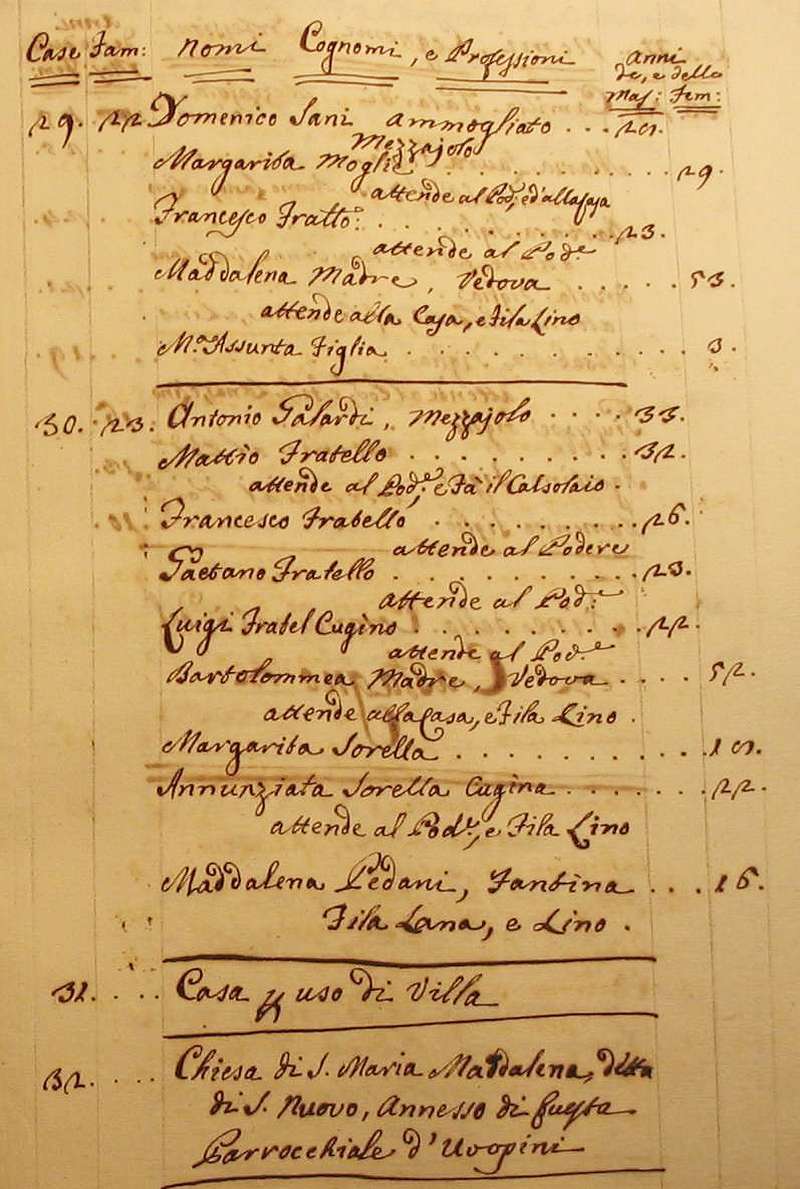 Case Fam: Nomi Cognomi, e Professioni Anni
de, e delle
Mas: Fem:
29. 22. Domenico Sani Ammogliato . . .
Mezzajolo
Margarita Moglie . . . . . . . . . 29.
attende al Pod.e, ed alla Casa
Francesco Fratto: . . . . . . . . . . 23.
attende al Pod.e
Maddalena Madre, Vedova . . . . . 53.
attende alla Casa, e Fila Lino
M.a Assunta Figlia . . . . . . . . . . . . 3.
30. 23. Antonio Galardi, Mezzajolo . . . . 33.
Mattio Fratello . . . . . . . . . 32.
attende al Pod.e, e Fà il Calsolaio .
Francesco Fratello . . . . . . . . 26.
attende al Podere
Gaetano Fratello . . . . . . . . . . 23.
Attende al Pod.e
Luigi Fratel Cugino . . . . . . . . . . 22.
attende al Pod.e
Bartolommea Madre, Vedova . . . . 52.
attende alla Casa, e Fila Lino .
Margarita Sorella . . . . . . . . . .
Annunziata Sorella Cugina . . . . . . . 22.
attende al Pod.e, e Fila Lino
Maddalena Pedani, Fantina . . . 16.
Fila Lana, e Lino .
31. . . . Casa p uso di Villa
32. . . . Chiesa di S. Maria Maddalena, detta
di S. Nuovo, Annesso di questa
Parrocchiale d'Uopini